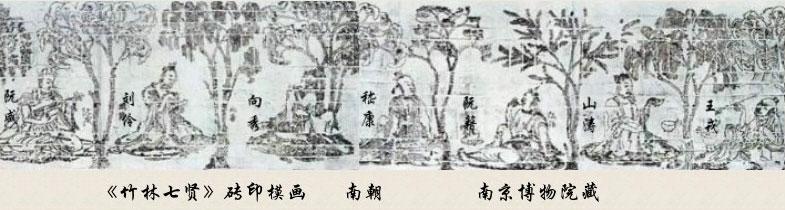 阮咸
刘伶
向秀
嵇康
阮籍
山涛
王戎
《竹林七贤》砖印模画 南朝 南京博物院藏